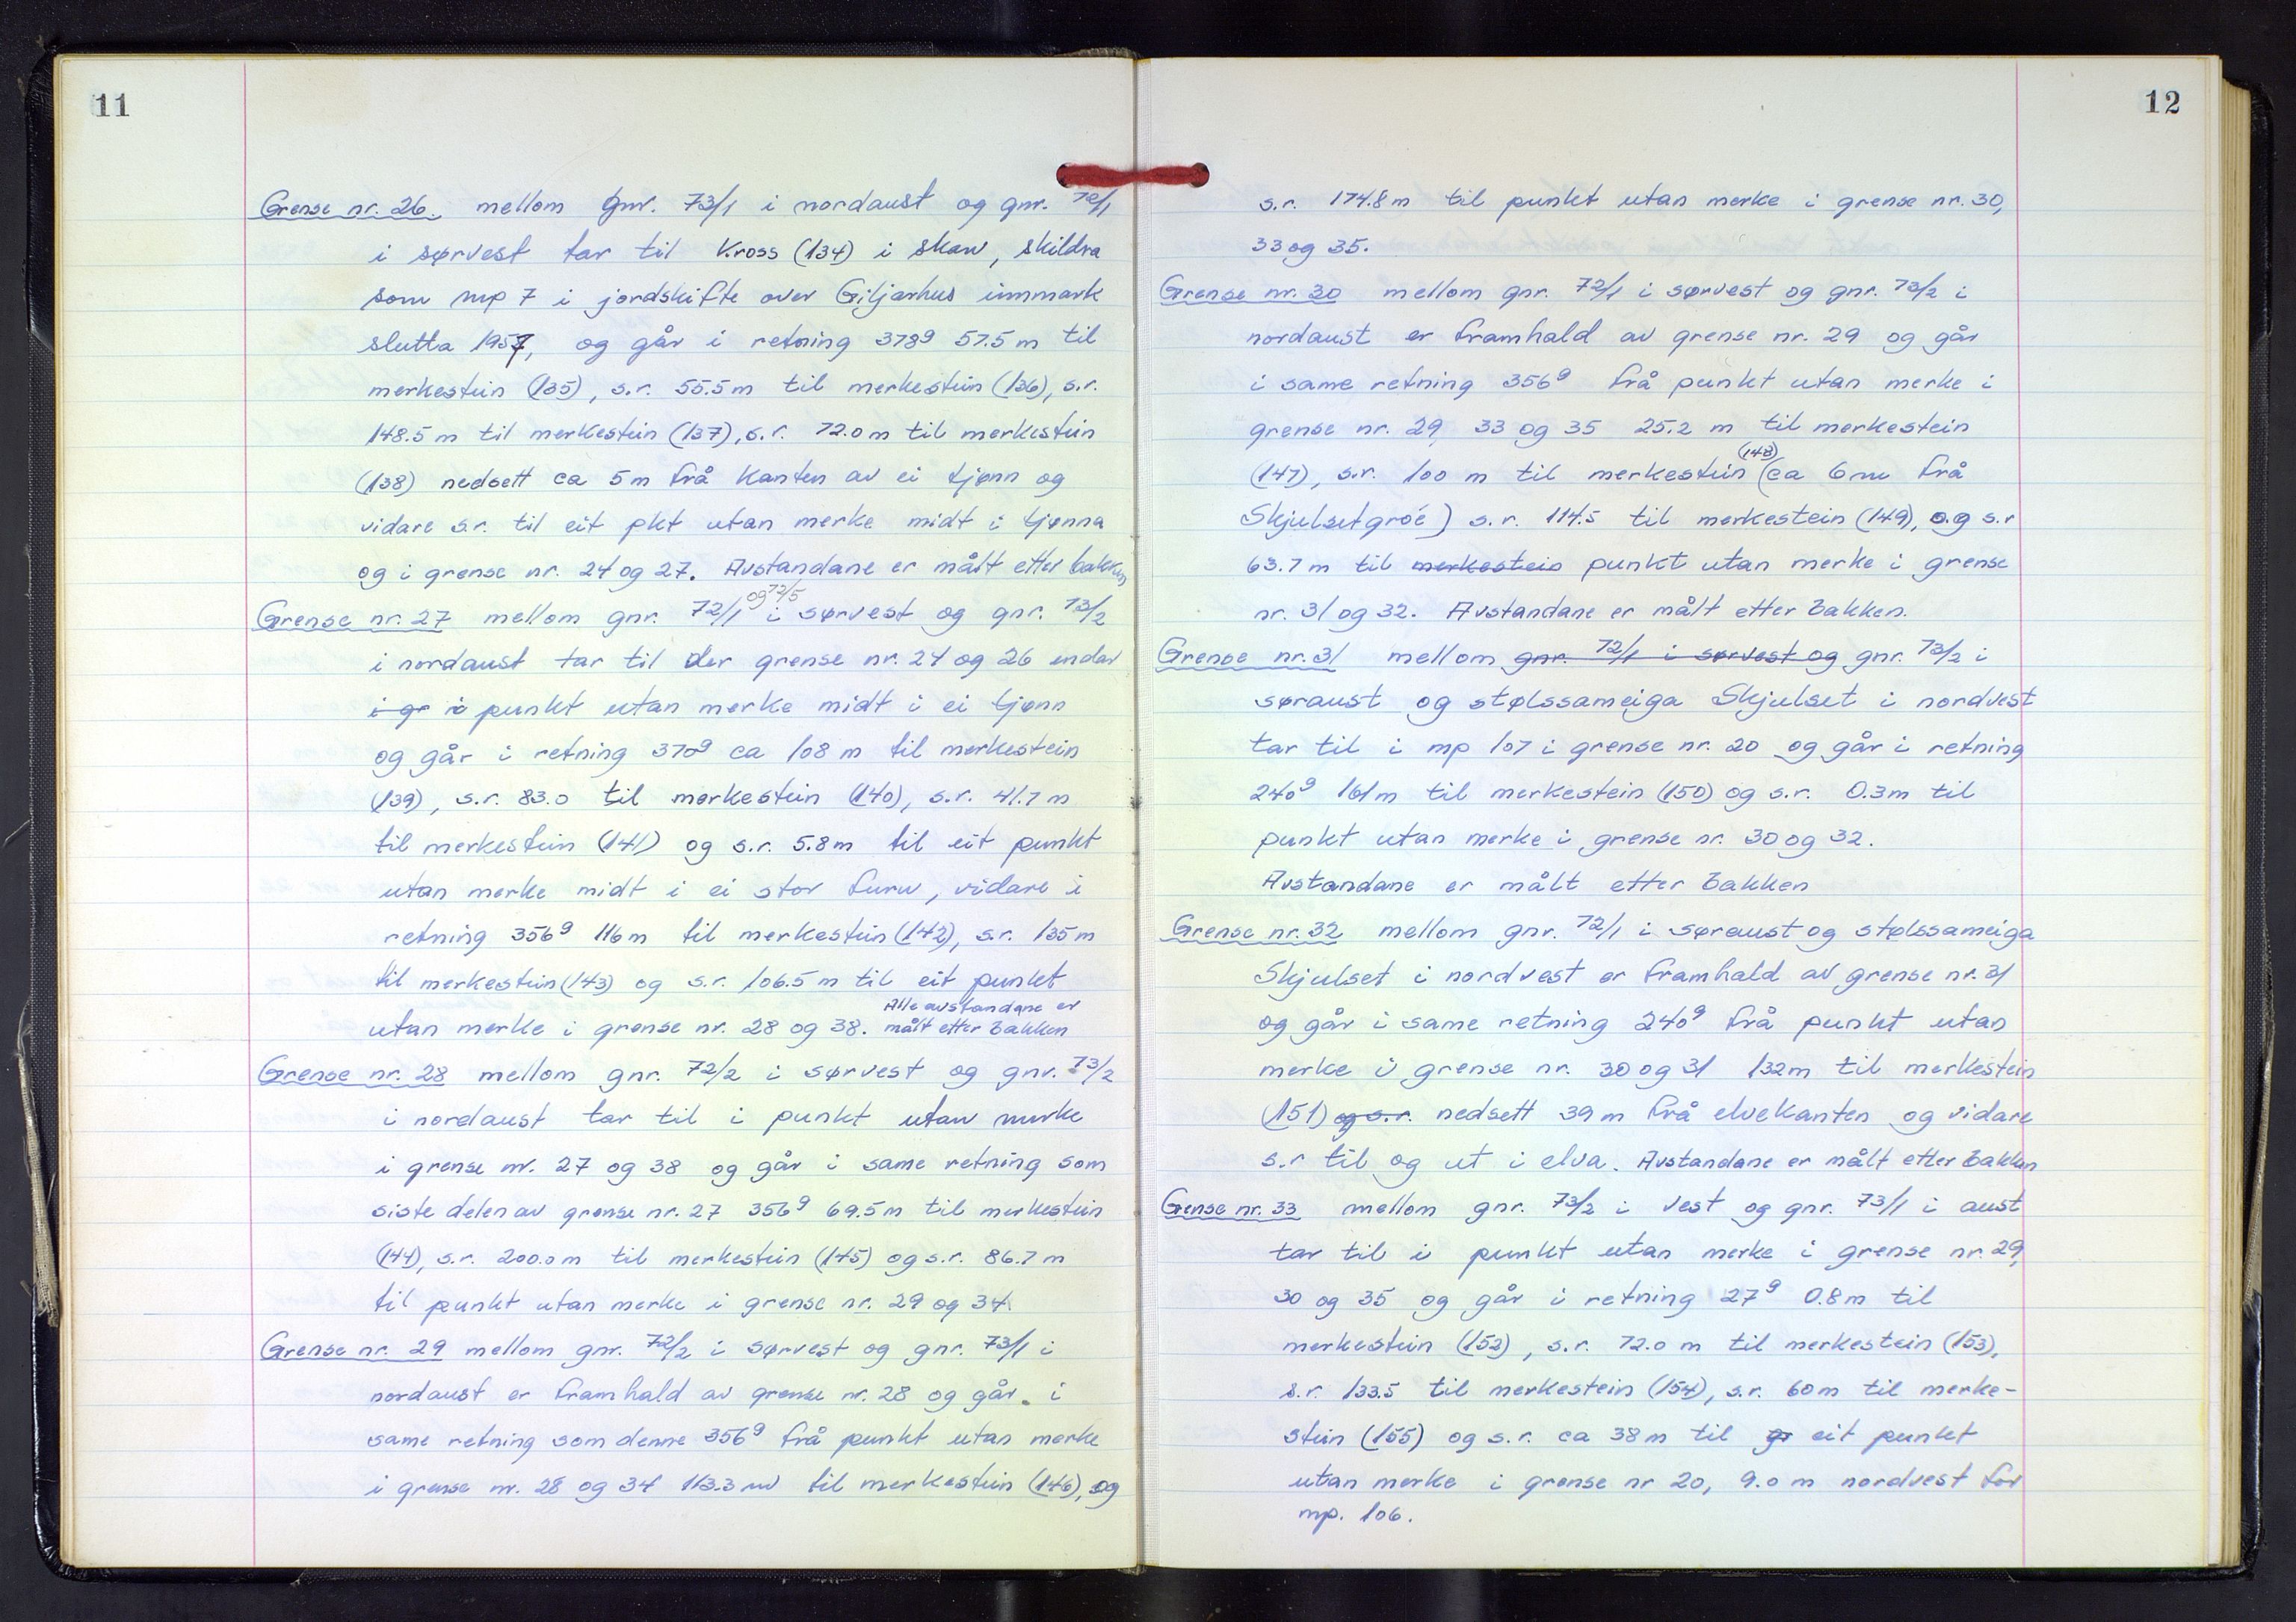 11
Grense nr. 26. mellom gnr. 73/1 i nordaust og gnr. 72/1
i sørvest tar til Kross (134) i skarv, skildra
som mp 7 i jordskifte over Giljarhus innmark
slutta 1957, og går i retning 378g 57.5 m til
merkestein (135), s.r. 55.5m til merkestein (136), s.r.
148.5 m til merkestein (137), s.r. 72.0 m til merkestein
(138) nedsett ca 5 m frå kanten av ei tjønn og
vidare s.r. til eit pkt utan merke midt i tjønna
og i grense nr. 24 og 27. Avstandane er målt etter bakken
og 72/5
Grense nr. 27 mellom gnr. 72/1 i sørvest og gnr. 73/2
i nordaust tar til der grense nr. 24 og 26 endar
i gr i punkt utan merke midt i ei tjønn
og går i retning 370g ca 108 m til merkestein
(139), s.r. 83.0 til merkestein (140), s.r. 41.7 m
til merkestein (141) og s.r. 5.8m til eit punkt
utan merke midt i ei stor furu, vidare i
retning 356g 116 m til merkestein (142), s.r. 135 m
til merkestein (143) og s.r. 106.5 m til eit punkt
Alle avstandane er
utan merke i grense nr. 28 og 38. målt etter bakken
Grense nr. 28 mellom gnr. 72/2 i sørvest og gnr. 73/2
i nordaust tar til i punkt utan merke
i grense nr. 27 og 38 og går i same retning som
siste delen av grense nr. 27 356g 69.5 m til merkestein
(144), s.r. 200.0 m til merkestein (145) og s.r. 86.7 m
til punkt utan merke i grense nr. 29 og 34
Grense nr. 29 mellom gnr. 72/2 i sørvest og gnr. 73/1 i
nordaust er framhald av grense nr. 28 og går. i
same retning som denne 356g frå punkt utan merke
i grense nr. 28 og 34 113.3 m til merkestein (146), og
12
s.r. 174.8 m til punkt utan merke i grense nr. 30,
33 og 35.
Grense nr. 30 mellom gnr. 72/1 i sørvest og gnr. 73/2 i
nordaust er framhald av grense nr. 29 og går
i same retning 356g frå punkt utan merke i
grense nr. 29, 33 og 35 25.2 m til merkestein
(148)
(147), s.r. 100 m til merkestein (ca 6 m frå
Skjulsetgroé) s.r. 114.5 til merkestein (149), og s.r
63.7 m til merkestein punkt utan merke i grense
nr. 31 og 32. Avstandane er målt etter bakken.
Grense nr. 31 mellom gnr. 72/1 i sørvest og gnr. 73/2 i
søraust og stølssameiga Skjulset i nordvest
tar til i mp 107 i grense nr. 20 og går i retning
240g 161m til merkestein (150) og s.r. 0.3m til
punkt utan merke i grense nr. 30 og 32.
Avstandane er målt etter bakken
Grense nr. 32 mellom gnr. 72/1 i søraust og stølssameiga
Skjulset i nordvest er framhald av grense nr. 31
og går i same retning 240g frå punkt utan
merke i grense nr. 30 og 31 132m til merkestein
(151) og s.r. nedsett 39 m frå elvekanten og vidare
s.r til og ut i elva. Avstandane er målt etter bakken
Grense nr. 33 mellom gnr. 73/2 i vest og gnr. 73/1 i aust
tar til i punkt utan merke i grense nr. 29,
30 og 35 og går i retning 27g 0.8m til
merkestein (152), s.r. 72.0 m til merkestein (153),
s.r. 133.5 til merkestein (154), s.r. 60m til merke-
stein (155) og s.r. ca 38 m til gr eit punkt
utan merke i grense nr 20, 9.0 m nordvest for
mp. 106.